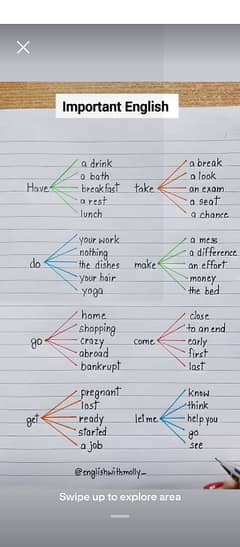 Important English
a drink
a bath
Have breakfast
a rest
lunch
a break
a look
take an exam
a seat
a chance
your work
nothing
do the dishes
your hair
yoga
a mess
a difference
make an effort
money
the bed
home
shopping
go crazy
abroad
bankrupt
close
to an end
come early
first
last
pregnant
lost
get ready
started
a job
know
think
let me help you
go
see
@englishwithmolly_
Swipe up to explore area